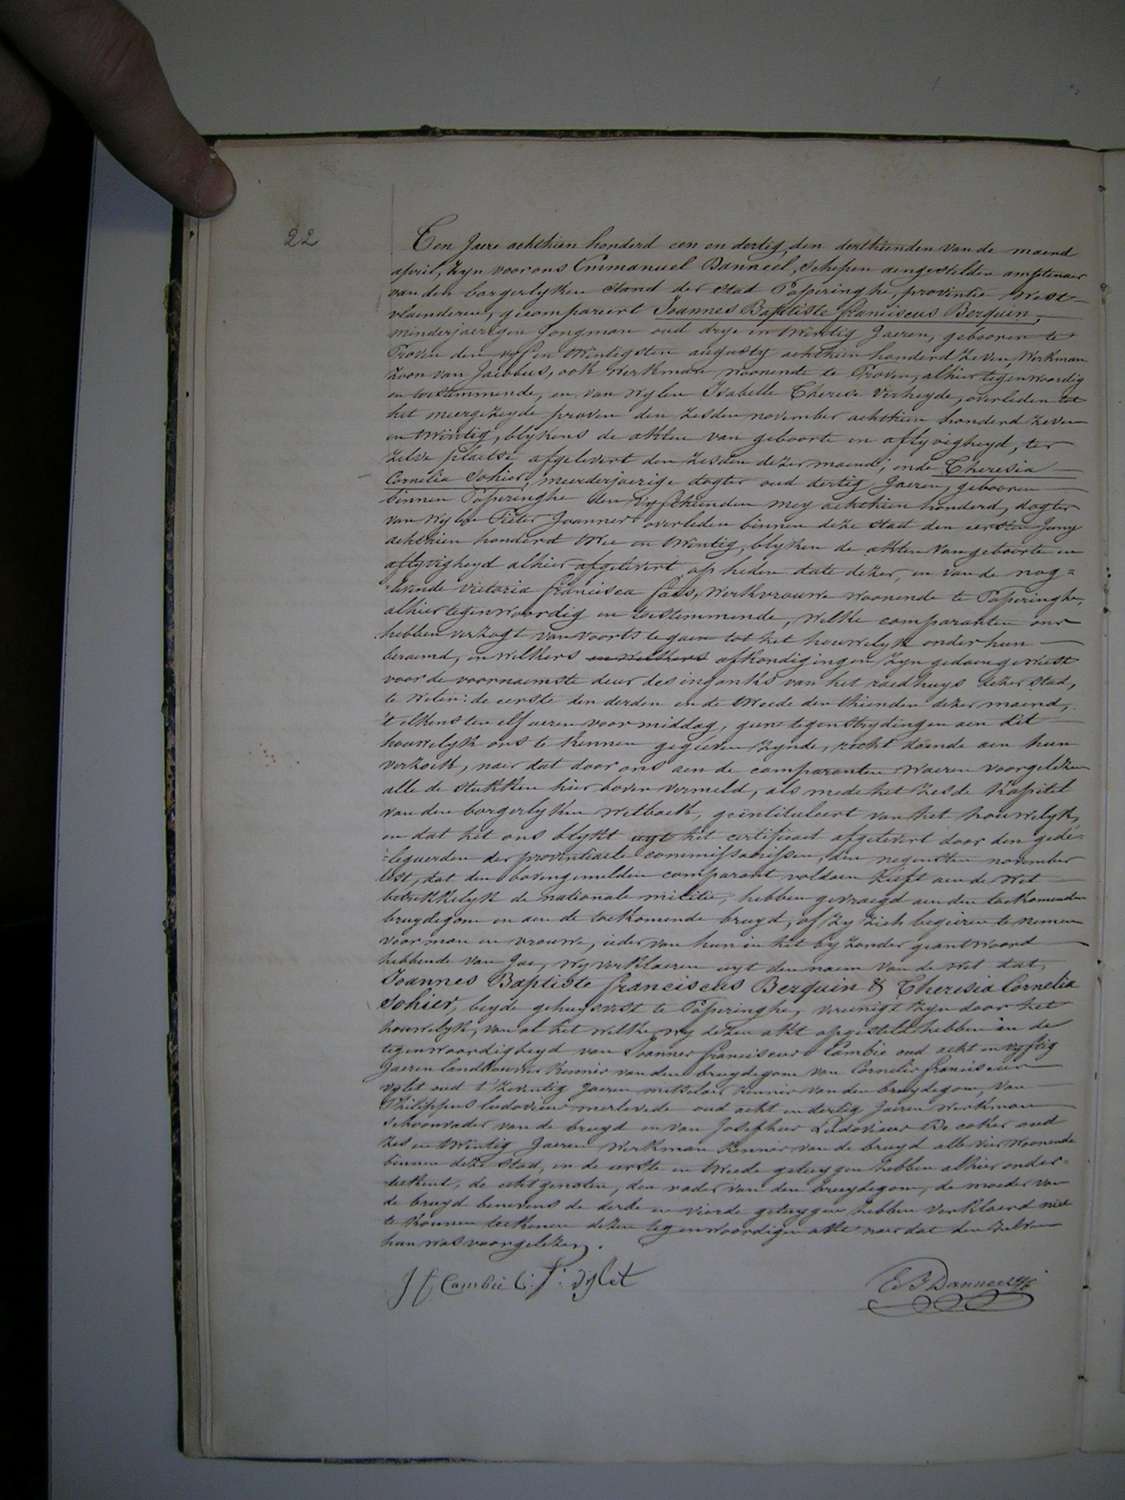 22
Ten Jaere achthien honderd een en dertig, den derthienden van de maend
april, zyn voor ons Emmanuel Banneel, schepen aengestelden amptenaer
van den borgerlyken stand der stad Poperinghe, provintie West-
vlaenderen, gecompareert Joannes Baptiste franciscus Berquin,
minderjaerigen Jongman oud drye en twintig Jaeren, gebooren te
Proven den vyf en twintigsten augusty achthien honderd zeven, Werkman
zoon van Jacobus, ook Werkman woonende te Proven, alhier tegenwoordig
en toestemmende, en, van Wylen Isabelle Therese Verheyde, overleden tot
het meergezeyde proven den zesden november achthien honderd zeven
en twintig, blykens de akten van geboorte en aflyvigheyd, ter
zelve plaetse afgelevert den zesden dezer maend; ende Theresia
Cornelia Sohier, meerderjaerige dogter oud dertig Jaeren, gebooren
binnen Poperinghe den vyfthienden mey achthien honderd, dogter
van Wylen Pieter Joannes overleden binnen deze stad den eersten Juny
achthien honderd twee en twintig, blyken de akten van geboorte en
aflyvigheyd alhier afgelevert op heden date dezer, en van de nog=
levende Victoria francisca faes, Werkvrouwe woonende te Poperinghe,
alhier tegenwoordig en toestemmende, welke comparanten ons
hebben verzogt van voorts te gaen tot het houwelyk onder hun
beraemd, en welkers en welkers afkondigingen zyn gedaen geweest
voor de voornaemste deur des ingangs van het raedhuys dezer stad,
te weten: de eerste den derden en de tweede den thienden dezer maend,
't elkens ten elf ueren voormiddag, geene tegenstrydingen aen dit
houwelyk ons te kennen gegeven zynde, recht doende aen hun
verzoek, naer dat door ons aen de comparanten waeren voorgelezen
alle de stukken hier boven vermeld, als mede het zesde kapitel
van den borgerlyken Wetboek, geintituleert van het houwelyk,
en dat het ons blykt uyt het certificaet afgelevert door den gede-
legueerden der provintiaele commissarissen, den negensten november
lest, dat den bovengemelden comparant voldaen heeft aen de Wet
betrekkelyk de nationale militie, hebben gevraegd aen den toekomenden
bruydegom en aen de toekomende bruyd, of zy zich begeeren te nemen
voor man en vrouwe, ieder van hun in het byzonder geantwoord
hebbende van Jae, wy verklaeren uyt den naem van de Wet dat,
Joannes Baptiste franciscus Berquin & Theresia Cornelia
Sohier, beyde gehuysvest te Poperinghe, vereenigt zyn door het
houwelyk, van al het welke wy dezen akt opgestelt hebben in de
tegenwoordigheyd van Joannes franciscus Cambie oud acht en vyftig
Jaeren Landbouwer kennis van den bruydegom van Cornelis franciscus
Vylet oud t'zeventig Jaeren metselaer kennis van den bruydegom, van
Philippus Ludovicus merlevede oud acht en dertig Jaeren Werkman
schoonvader van de bruyd en van Josephus Ludovicus De coker oud
zes en twintig Jaeren Werkman kennis van de bruyd alle vier woonende
binnen deze stad, en de eerste en tweede getuygen hebben alhier onder-
teekent, de echtgenoten, den vader van den bruydegom, de moeder van
de bruyd benevens de derde en vierde getuygen hebben verklaerd niet
te konnen teekenen dezen tegenwoordigen akte naer dat den zelven
hun was voorgelezen.
J f Cambié C: F: Vylet
E B Banneel